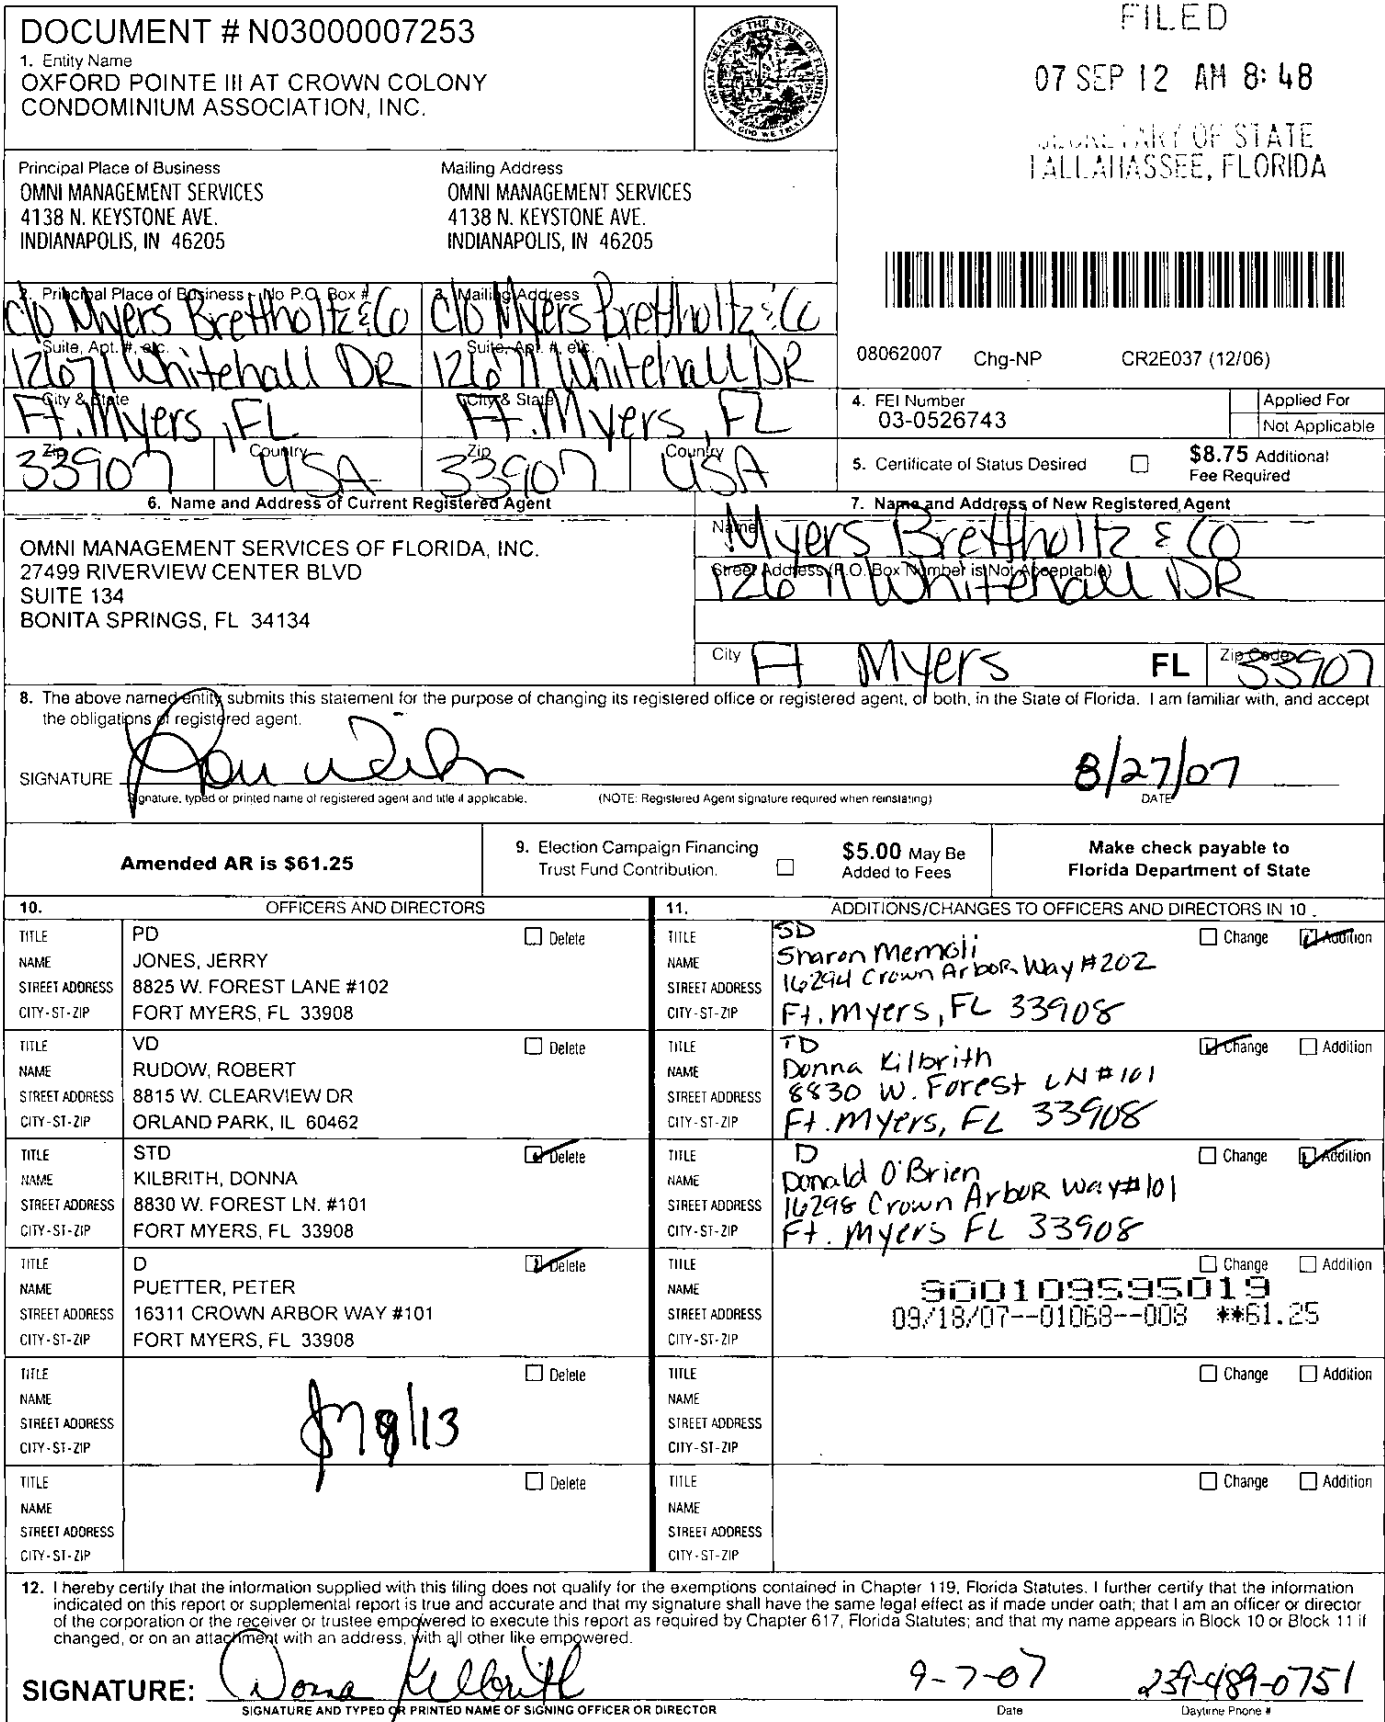 DOCUMENT # N03000007253
1. Entity Name
OXFORD POINTE III AT CROWN COLONY
CONDOMINIUM ASSOCIATION, INC.
GREAT SEAL OF THE STATE OF FLORIDA
IN GOD WE TRUST
FILED
07 SEP 12 AM 8:48
SECRETARY OF STATE
TALLAHASSEE, FLORIDA
Principal Place of Business
OMNI MANAGEMENT SERVICES
4138 N. KEYSTONE AVE.
INDIANAPOLIS, IN 46205
Mailing Address
OMNI MANAGEMENT SERVICES
4138 N. KEYSTONE AVE.
INDIANAPOLIS, IN 46205
2. Principal Place of Business - No P.O. Box #
c/o Myers Brettholtz & Co
Suite, Apt. #, etc.
12671 Whitehall DR
City & State
Ft. Myers, FL
Zip 33907 Country USA
3. Mailing Address
c/o Myers Brettholtz & Co
Suite, Apt. #, etc.
12671 Whitehall DR
City & State
Ft. Myers, FL
Zip 33907 Country USA
08062007 Chg-NP CR2E037 (12/06)
4. FEI Number
03-0526743
Applied For
Not Applicable
5. Certificate of Status Desired
$8.75 Additional
Fee Required
6. Name and Address of Current Registered Agent
OMNI MANAGEMENT SERVICES OF FLORIDA, INC.
27499 RIVERVIEW CENTER BLVD
SUITE 134
BONITA SPRINGS, FL 34134
7. Name and Address of New Registered Agent
Name
Myers Brettholtz & Co
Street Address (P.O. Box Number is Not Acceptable)
12671 Whitehall DR
City Ft Myers FL Zip Code 33907
8. The above named entity submits this statement for the purpose of changing its registered office or registered agent, or both, in the State of Florida. I am familiar with, and accept
the obligations of registered agent.
SIGNATURE
8/27/07
Signature, typed or printed name of registered agent and title if applicable. (NOTE: Registered Agent signature required when reinstating) DATE
Amended AR is $61.25
9. Election Campaign Financing
Trust Fund Contribution.
$5.00 May Be
Added to Fees
Make check payable to
Florida Department of State
10. OFFICERS AND DIRECTORS
TITLE PD Delete
NAME JONES, JERRY
STREET ADDRESS 8825 W. FOREST LANE #102
CITY-ST-ZIP FORT MYERS, FL 33908
TITLE VD Delete
NAME RUDOW, ROBERT
STREET ADDRESS 8815 W. CLEARVIEW DR
CITY-ST-ZIP ORLAND PARK, IL 60462
TITLE STD Delete
NAME KILBRITH, DONNA
STREET ADDRESS 8830 W. FOREST LN. #101
CITY-ST-ZIP FORT MYERS, FL 33908
TITLE D Delete
NAME PUETTER, PETER
STREET ADDRESS 16311 CROWN ARBOR WAY #101
CITY-ST-ZIP FORT MYERS, FL 33908
TITLE Delete
NAME
STREET ADDRESS
CITY-ST-ZIP
TITLE Delete
NAME
STREET ADDRESS
CITY-ST-ZIP
11. ADDITIONS/CHANGES TO OFFICERS AND DIRECTORS IN 10
TITLE SD Change Addition
NAME Sharon Memoli
STREET ADDRESS 16294 Crown Arbor Way #202
CITY-ST-ZIP Ft. Myers, FL 33908
TITLE TD Change Addition
NAME Donna Kilbrith
STREET ADDRESS 8830 W. Forest LN #101
CITY-ST-ZIP Ft. Myers, FL 33908
TITLE D Change Addition
NAME Donald O'Brien
STREET ADDRESS 16298 Crown Arbor Way #101
CITY-ST-ZIP Ft. Myers FL 33908
TITLE Change Addition
NAME 900109595019
STREET ADDRESS 09/18/07--01068--008 **61.25
CITY-ST-ZIP
TITLE Change Addition
NAME
STREET ADDRESS
CITY-ST-ZIP
TITLE Change Addition
NAME
STREET ADDRESS
CITY-ST-ZIP
12. I hereby certify that the information supplied with this filing does not qualify for the exemptions contained in Chapter 119, Florida Statutes. I further certify that the information
indicated on this report or supplemental report is true and accurate and that my signature shall have the same legal effect as if made under oath; that I am an officer or director
of the corporation or the receiver or trustee empowered to execute this report as required by Chapter 617, Florida Statutes; and that my name appears in Block 10 or Block 11 if
changed, or on an attachment with an address, with all other like empowered.
SIGNATURE: Donna Kilbrith 9-7-07 239-489-0751
SIGNATURE AND TYPED OR PRINTED NAME OF SIGNING OFFICER OR DIRECTOR Date Daytime Phone #